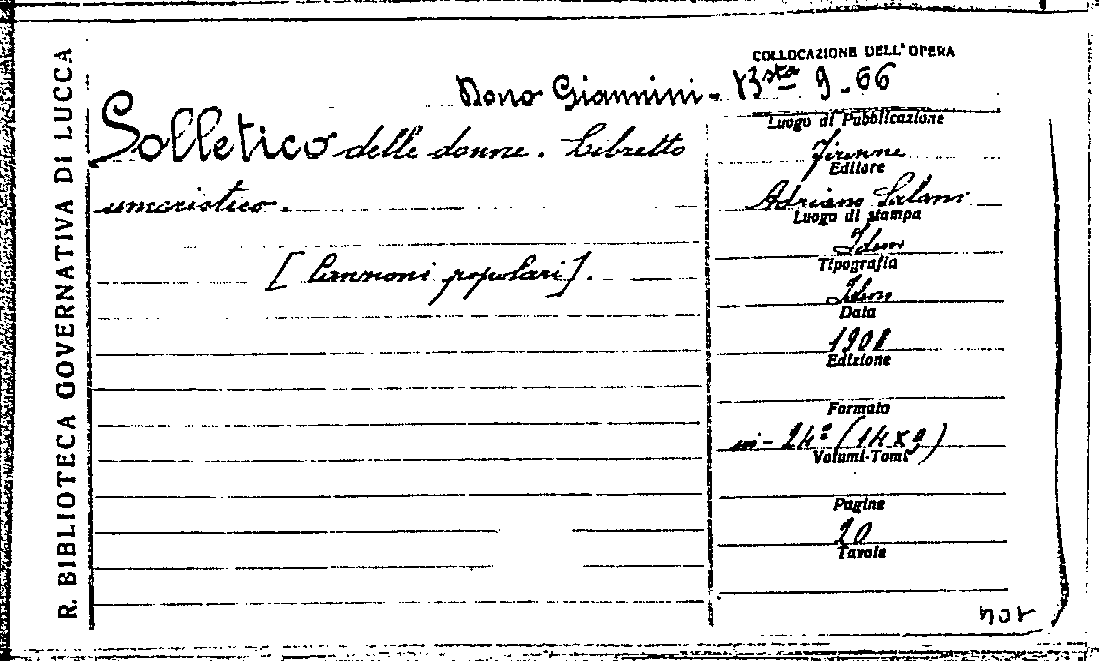 R. BIBLIOTECA GOVERNATIVA DI LUCCA
COLLOCAZIONE DELL'OPERA
Dono Giannini. Bsta 9.66
Solletico delle donne. Libretto
umoristico.
[Canzoni popolari].
Luogo di Pubblicazione
Firenze
Editore
Adriano Salani
Luogo di stampa
Idem
Tipografia
Idem
Data
1908
Edizione
Formato
in-24º (14x9)
Volumi-Tomi
Pagine
20
Tavole